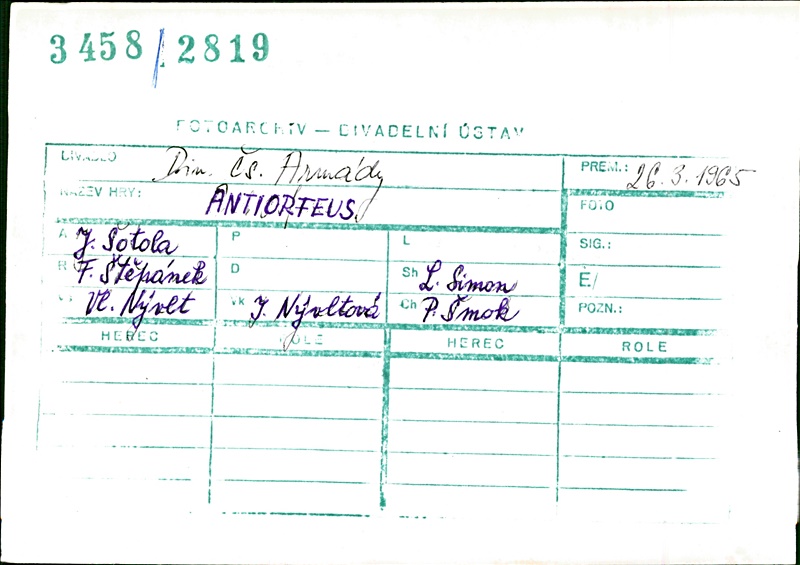 3458/2819
FOTOARCHIV — DIVADELNÍ ÚSTAV
DIVADLO Div. Čs. Armády PREM.: 26.3.1965
NÁZEV HRY: ANTIORFEUS. FOTO
A J. Šotola P L SIG.:
R F. Štěpánek D Sh L. Simon Ė/
Vl. Nývlt Vk J. Nývltová Ch P. Šmok POZN.:
HEREC ROLE HEREC ROLE